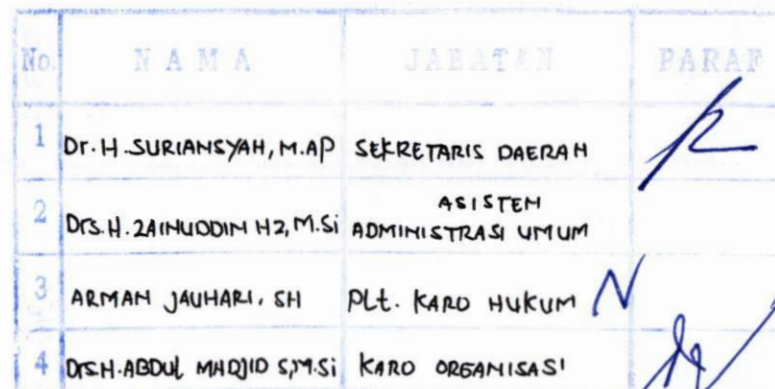 No. N A M A JABATAN PARAF
1 Dr. H. SURIANSYAH, M.AP SEKRETARIS DAERAH
2 Drs. H. ZAINUDDIN HZ, M.Si ASISTEN
ADMINISTRASI UMUM
3 ARMAN JAUHARI, SH PLt. KARO HUKUM
4 Drs.H.ABDUL MADJID S,M.Si KARO ORGANISASI